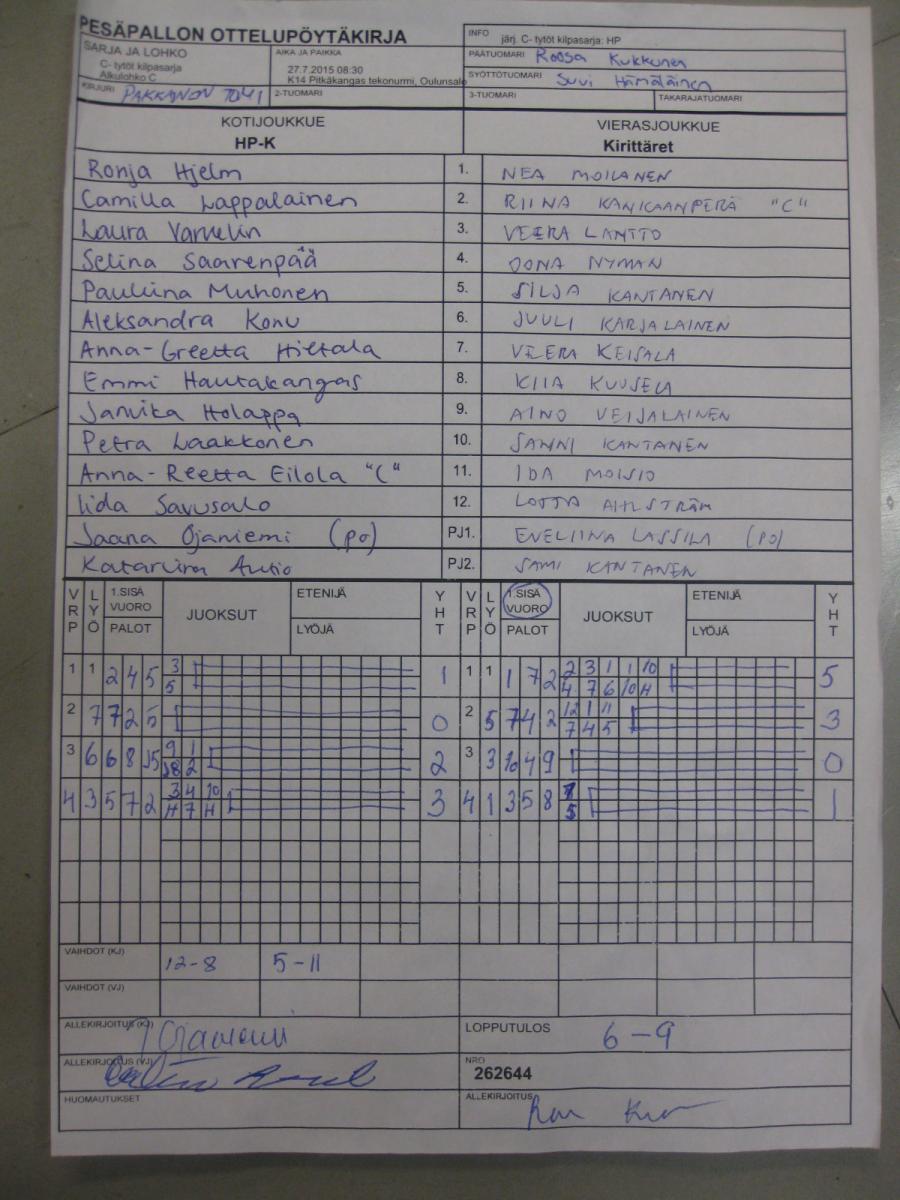 PESÄPALLON OTTELUPÖYTÄKIRJA
SARJA JA LOHKO
C- tytöt kilpasarja
Alkulohko C
AIKA JA PAIKKA
27.7.2015 08:30
K14 Pitkäkangas tekonurmi, Oulunsalo
INFO järj. C- tytöt kilpasarja: HP
PÄÄTUOMARI Roosa Kukkunen
SYÖTTÖTUOMARI Suvi Hämäläinen
KIRJURI PAKKANEN TOMI
2-TUOMARI
3-TUOMARI
TAKARAJATUOMARI
KOTIJOUKKUE
HP-K
VIERASJOUKKUE
Kirittäret
Ronja Hjelm 1. NEA MOILANEN
Camilla Lappalainen 2. RIINA KANKAANPERÄ "C"
Laura Varvelin 3. VEERA LANTTO
Selina Saarenpää 4. OONA NYMAN
Pauliina Muhonen 5. SILJA KANTANEN
Aleksandra Konu 6. JUULI KARJALAINEN
Anna-Greetta Hiltala 7. VEERA KEISALA
Emmi Hautakangas 8. KIIA KUUSELA
Janika Holappa 9. AINO VEIJALAINEN
Petra Laakkonen 10. SANNI KANTANEN
Anna-Reetta Eilola "C" 11. IDA MOISIO
Iida Savusalo 12. LOTTA AHLSTRÖM
Jaana Ojaniemi (po) PJ1. EVELIINA LASSILA (PO)
Katariina Autio PJ2. SAMI KANTANEN
VRP LYÖ 1.SISÄ VUORO PALOT JUOKSUT ETENIJÄ LYÖJÄ YHT VRP LYÖ 1.SISÄ VUORO PALOT JUOKSUT ETENIJÄ LYÖJÄ YHT
3 2 3 1 1 10
1 1 2 4 5 1 1 1 1 7 2 5
5 4 7 6 10 11
12 1 11
2 7 7 2 5 0 2 5 7 4 2 3
7 4 5
9 1
3 6 6 8 5 2 3 3 10 4 9 0
8 2
3 4 10
4 3 5 7 2 3 4 1 3 5 8 1
11 7 11 5
VAIHDOT (KJ) 12-8 5-11
VAIHDOT (VJ)
ALLEKIRJOITUS (KJ) J Ojaniemi
LOPPUTULOS 6-9
ALLEKIRJOITUS (VJ)
NRO
262644
HUOMAUTUKSET
ALLEKIRJOITUS